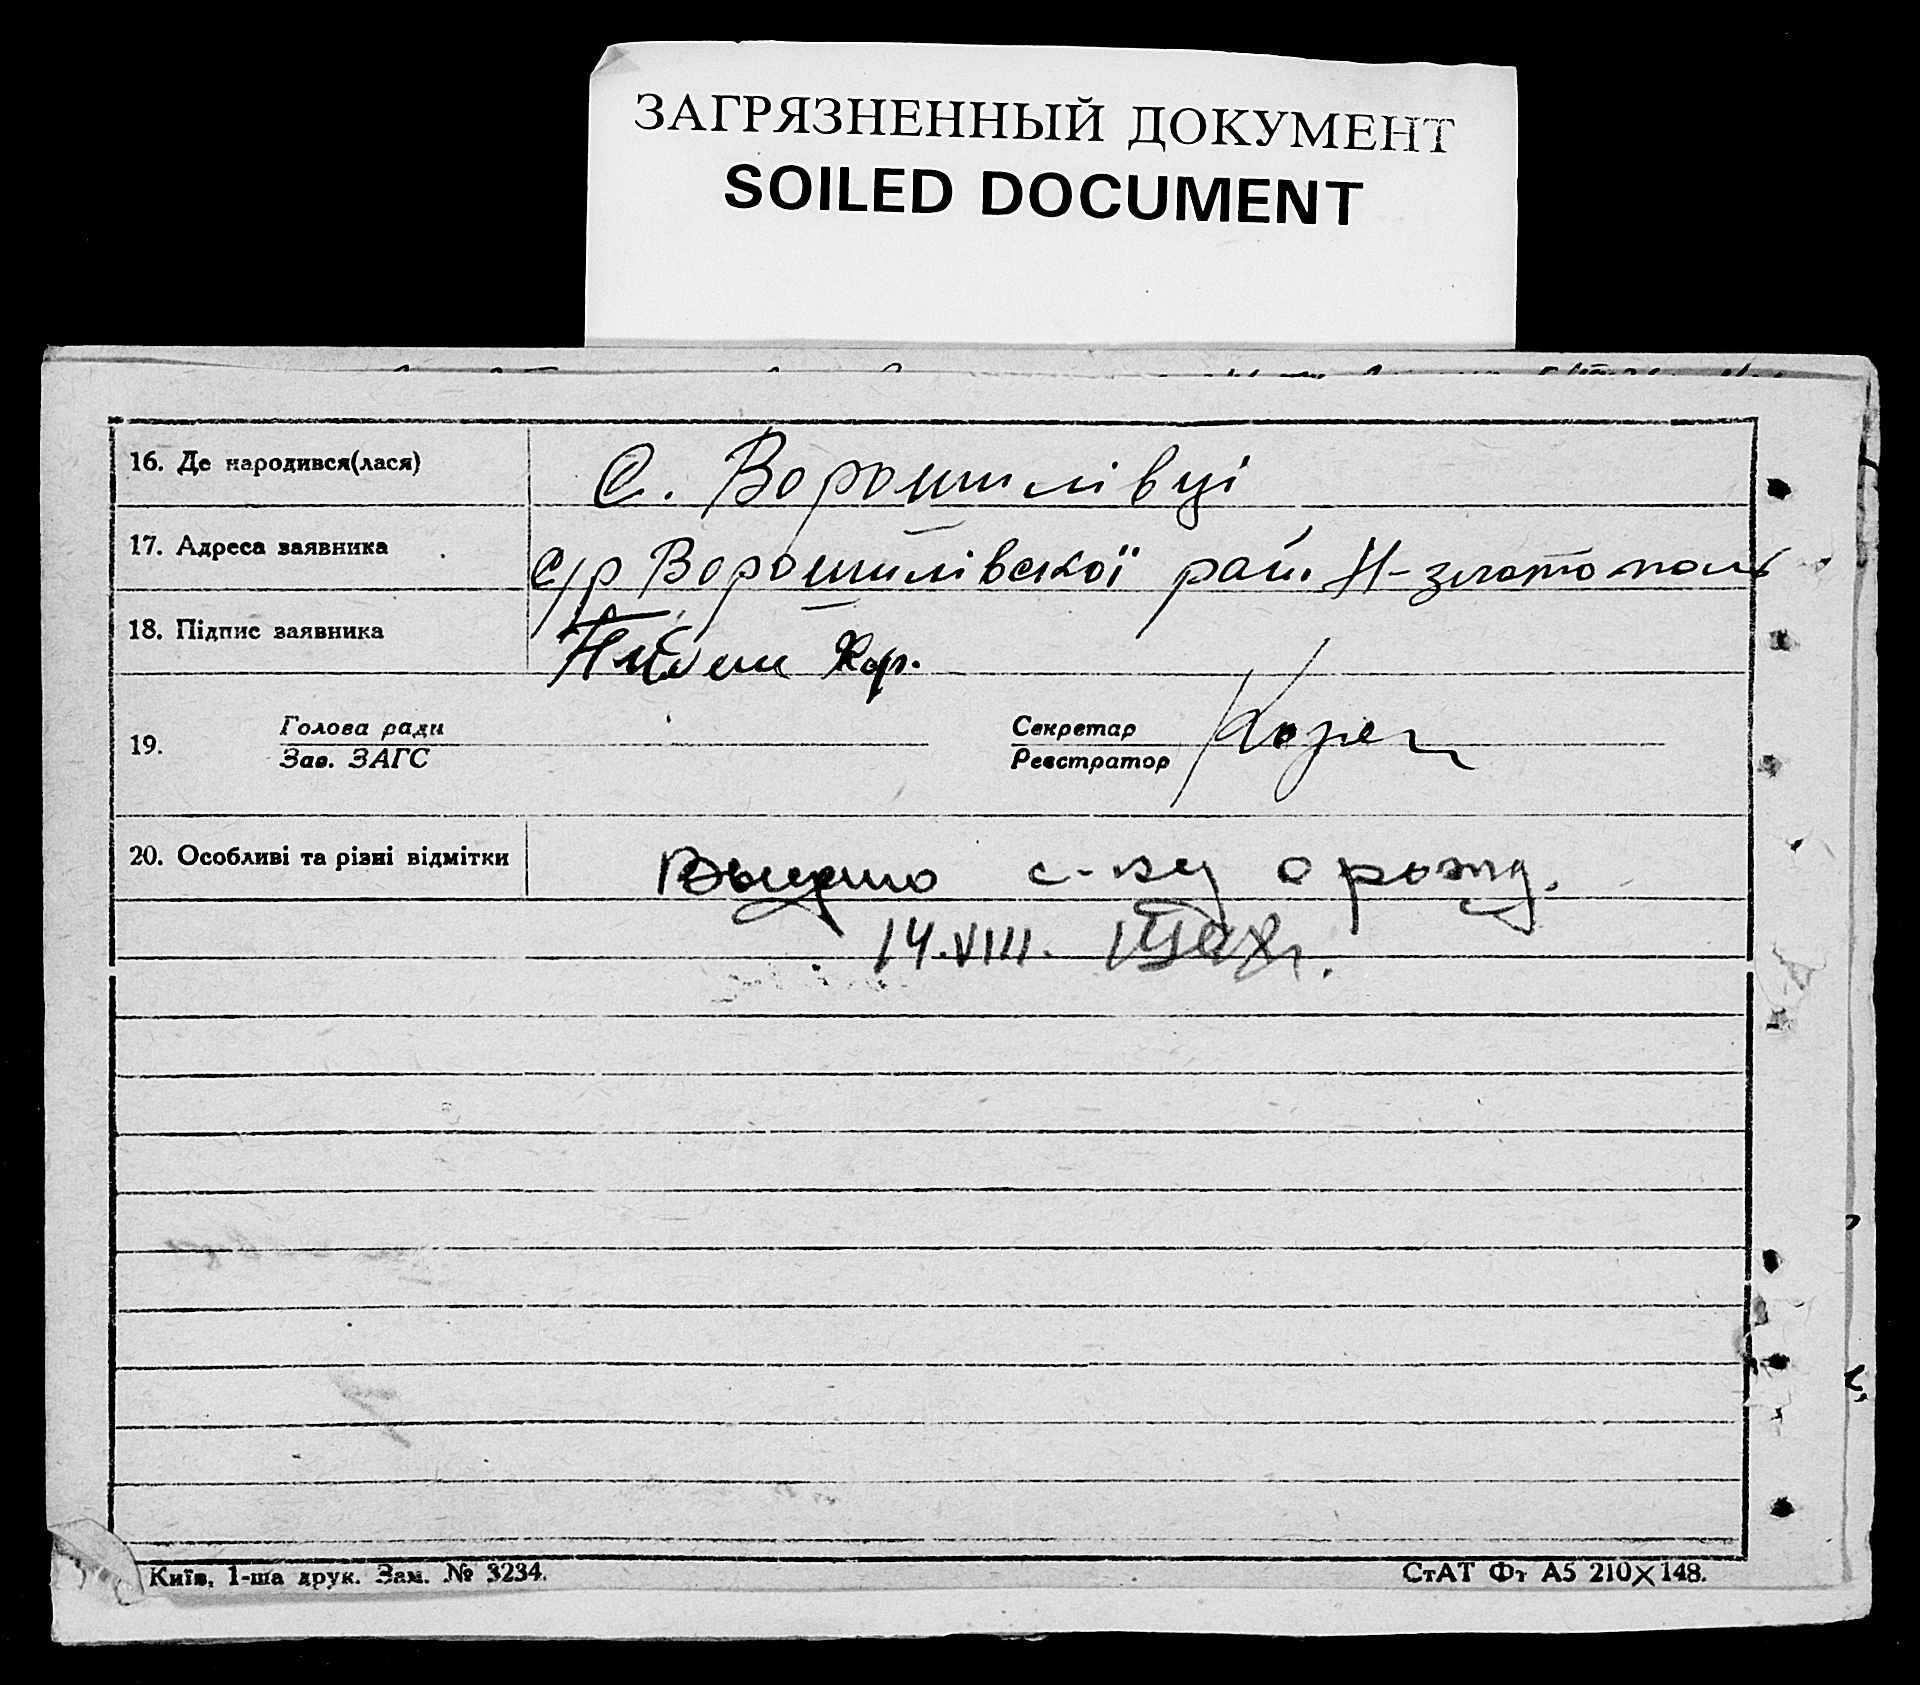 ЗАГРЯЗНЕННЫЙ ДОКУМЕНТ
SOILED DOCUMENT
16. Де народився(лася) С. Ворошилівці
17. Адреса заявника с/р Ворошилівської рай. Н-златополь
18. Підпис заявника
19. Голова ради
Зав. ЗАГС
Секретар
Реєстратор
20. Особливі та різні відмітки Выдано с-во о рожд.
14.VIII.
Київ, 1-ша друк. Зам. № 3234.
СтАТ Фт А5 210×148.